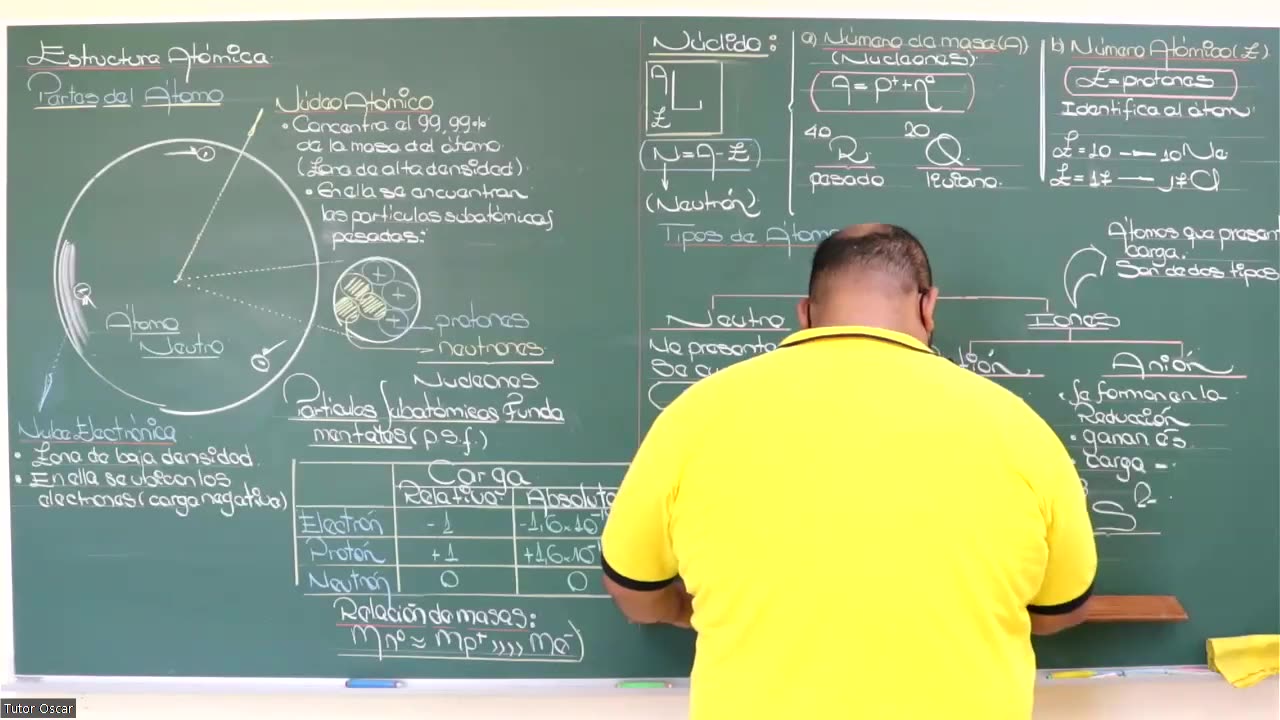 Estructura Atómica
Partes del Átomo
Núcleo Atómico
• Concentra el 99,99%
de la masa del átomo
(Zona de alta densidad).
• En ella se encuentran
las partículas subatómicas
pesadas:
+
+
+
protones
neutrones
Nucleones
Átomo
Neutro
Nube Electrónica
• Zona de baja densidad.
• En ella se ubican los
electrones (carga negativa)
Partículas Subatómicas Funda
mentales (p.s.f.)
Carga
Relativa Absoluta
Electrón -1 -1,6x10
Protón +1 +1,6x10
Neutrón 0 0
Relación de masas:
Mn° ≈ Mp⁺ >>>> Me⁻
Núclido:
A
L
Z
N = A - Z
(Neutrón)
a) Número de masa (A)
(Nucleones)
A = p⁺ + n°
40 R 20 Q
pesado liviano
b) Número Atómico (Z)
Z = protones
Identifica al átomo
Z = 10 → 10Ne
Z = 17 → 17Cl
Tipos de Átomo
Átomos que presen
carga.
Son de dos tipos
Neutro
No presenta
Iones
Anión
• Se forman en la
Reducción
• ganan é s
• carga -
S 2-
Tutor Oscar